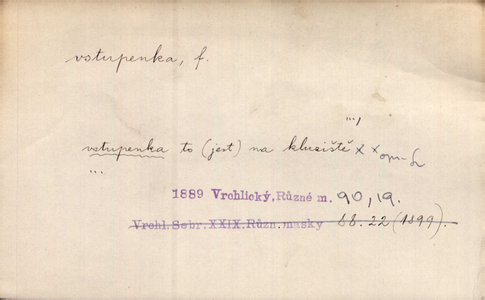 vstupenka, f.
...,
vstupenka to (jest) na klusiště x x
...
1889 Vrchlický, Různé m. 90,19.
Vrchl. Sebr. XXIX. Různ. masky 88. 22 (1899).